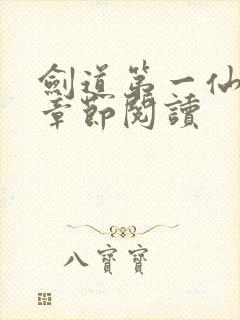 劍道第一仙
章節閱讀
八寶寶